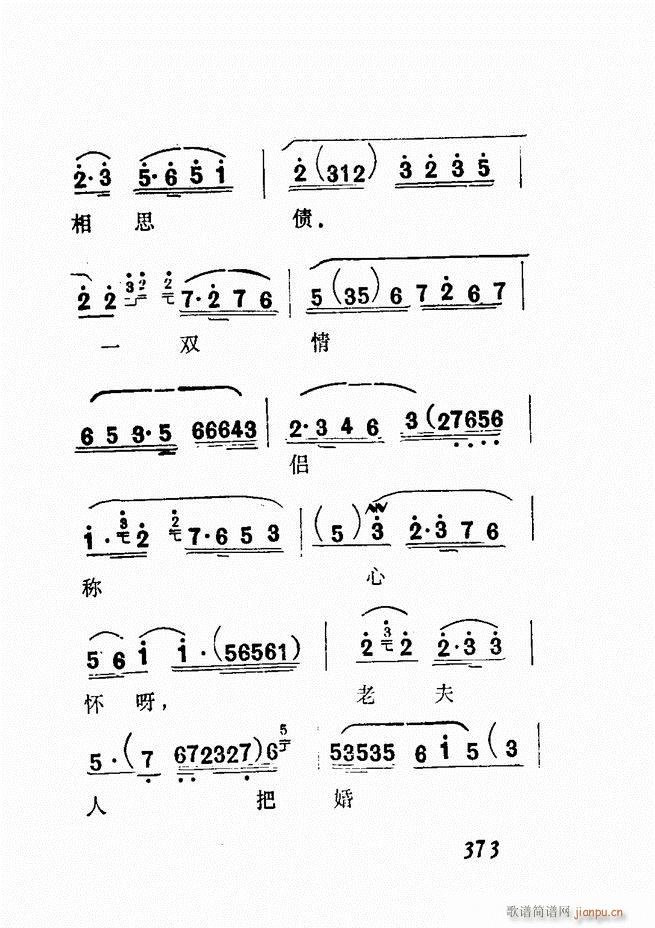 2·3 5·6 5 1 | 2 (312) 3 2 3 5 |
相 思 债.
2 2 3 2 2 7·2 7 6 | 5 (35) 6 7 2 6 7 |
一 双 情
6 5 3·5 66643 | 2·3 4 6 3 (27656
侣
1·3 2 2 7·6 5 3 | (5) 3 2·3 7 6 |
称 心
5 6 1 1·(56561) | 2 3 2 2·3 3 |
怀 呀, 老 夫
5·(7 672327) 6 5 | 53535 6 1 5 (3 |
人 把 婚
373
歌谱简谱网 jianpu.cn